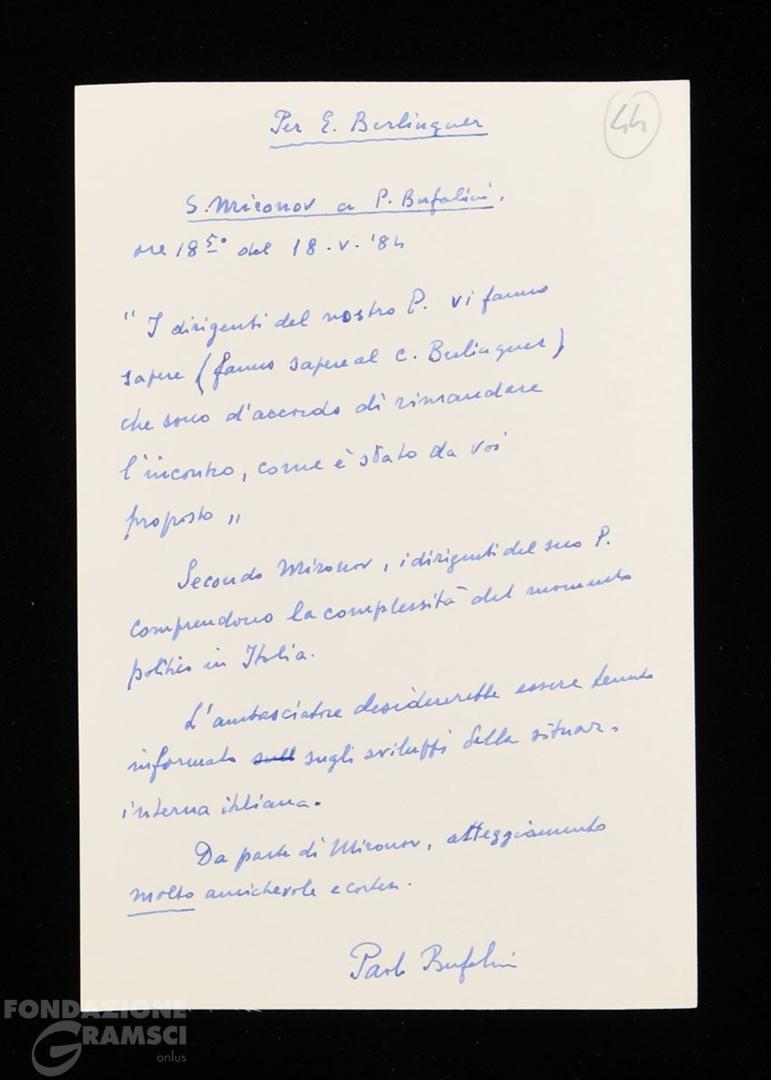 44
Per E. Berlinguer
S. Mironov a P. Bufalini.
ore 18 5° del 18.V.'84
" I dirigenti del nostro P. vi fanno
sapere (fanno sapere al c. Berlinguer)
che sono d'accordo di rimandare
l'incontro, come è stato da voi
proposto "
Secondo Mironov, i dirigenti del suo P.
comprendono la complessità del momento
politico in Italia.
L'ambasciatore desidererebbe essere tenuto
informato sugli sviluppi della situaz.
interna italiana.
Da parte di Mironov, atteggiamento
molto amichevole e cortese.
Paolo Bufalini
FONDAZIONE
GRAMSCI
onlus